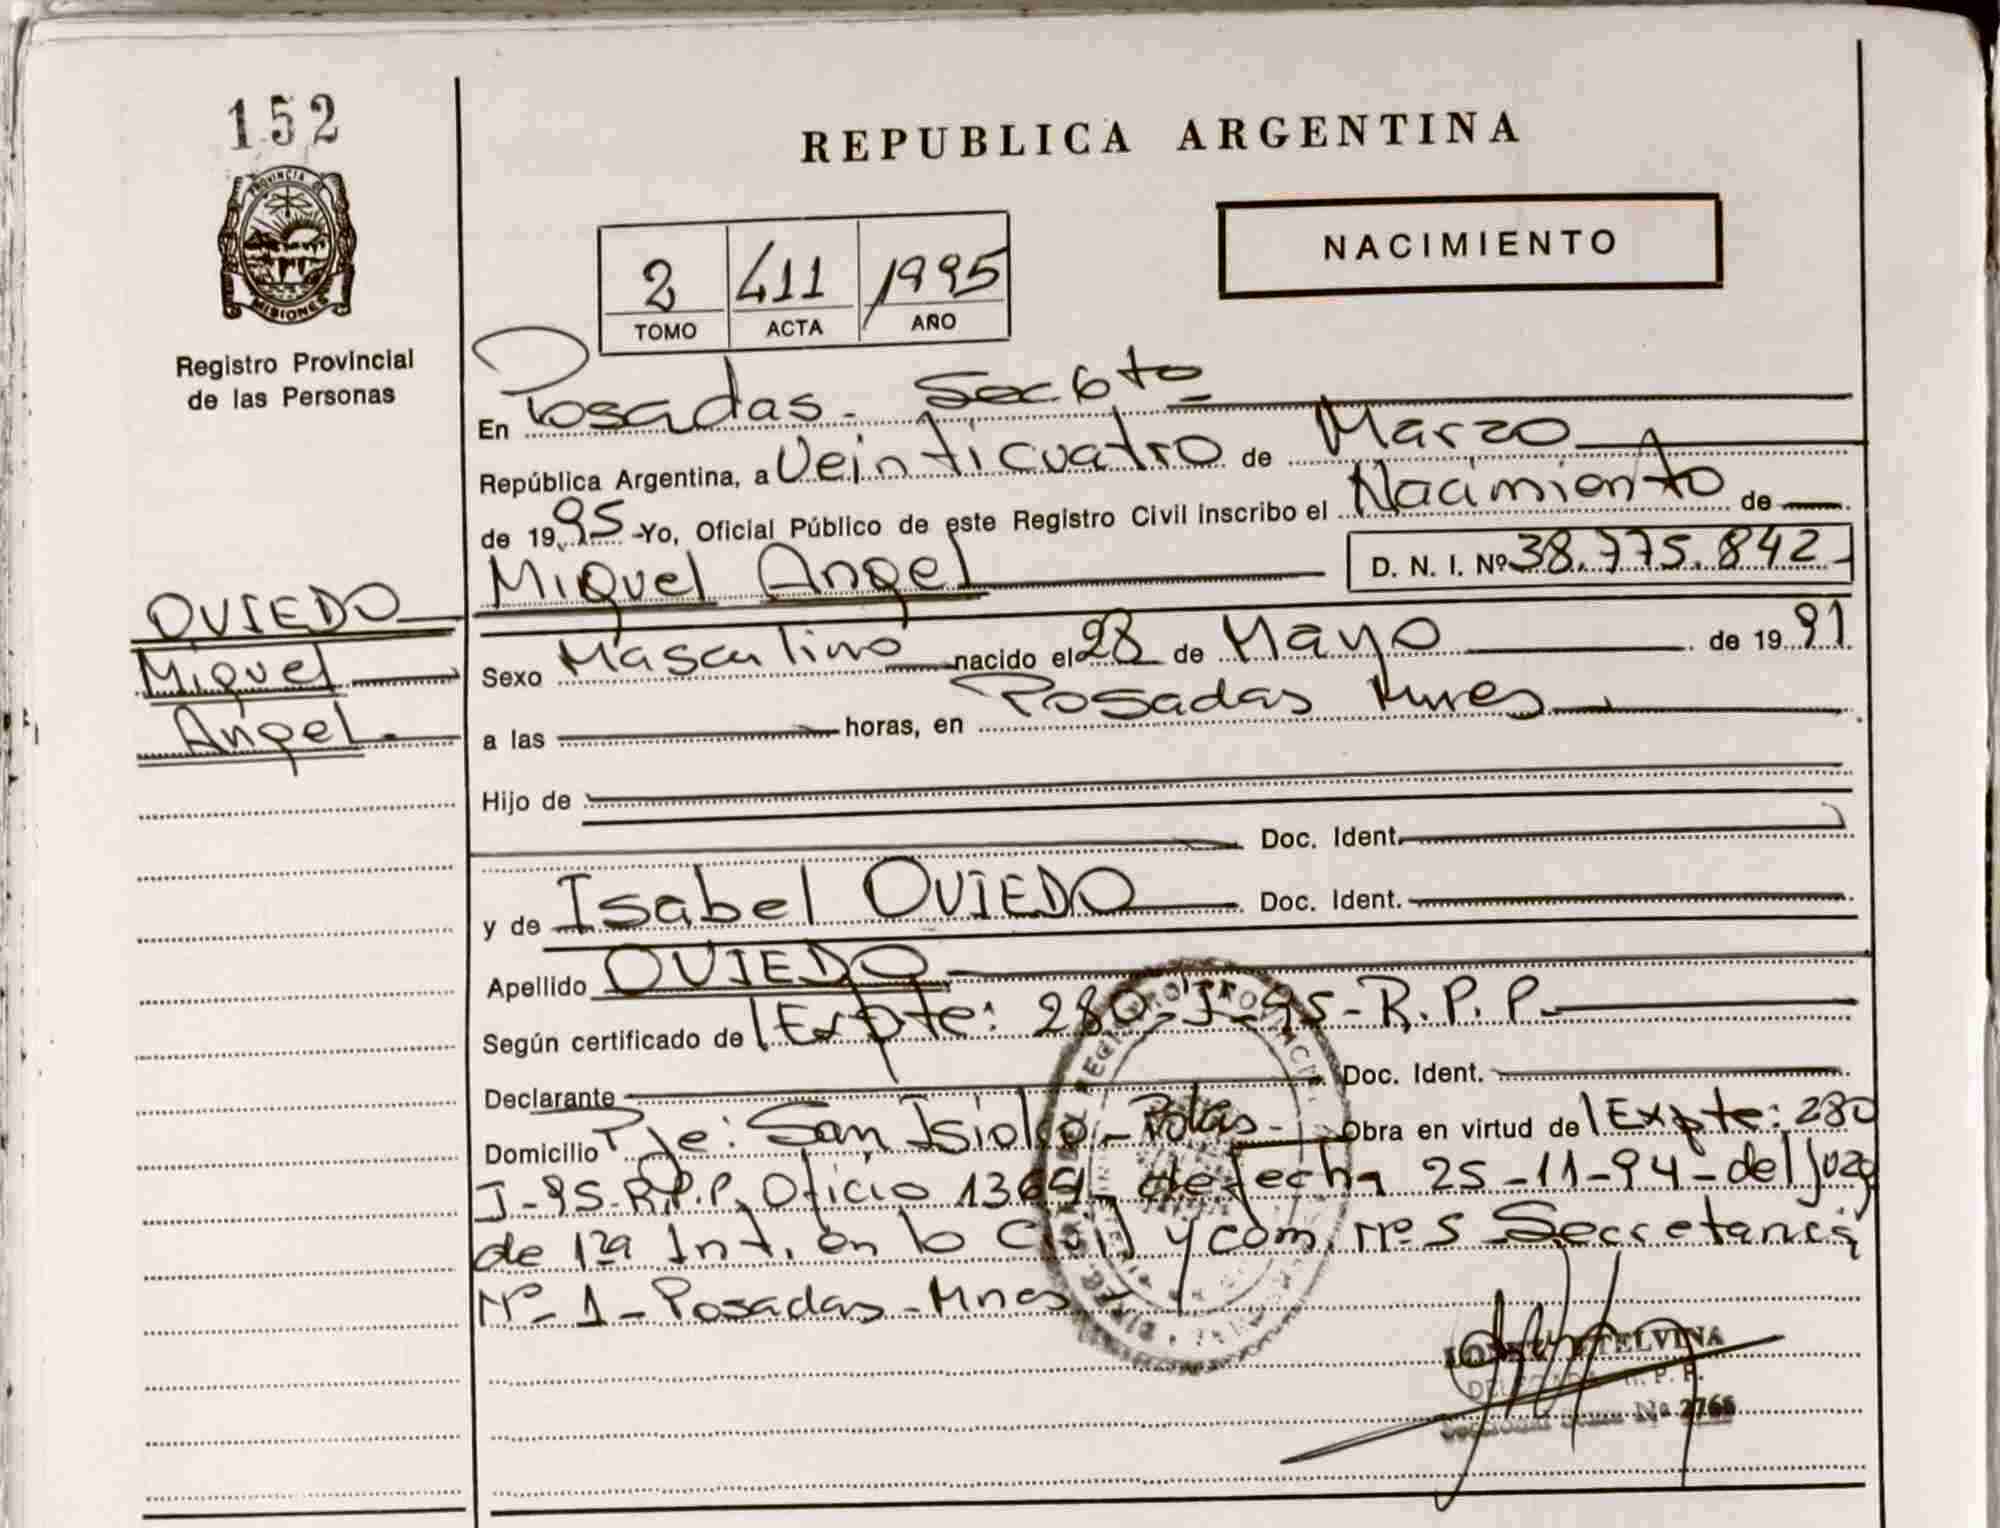 152
PROVINCIA DE
MISIONES
Registro Provincial
de las Personas
OVIEDO
Miguel
Angel.
REPUBLICA ARGENTINA
NACIMIENTO
2 411 1995
TOMO ACTA AÑO
En Posadas - Sec 6to
República Argentina, a Veinticuatro de Marzo
de 1995 -Yo, Oficial Público de este Registro Civil inscribo el Nacimiento de
Miguel Angel D. N. I. Nº 38.775.842
Sexo Masculino nacido el 28 de Mayo de 1991
a las horas, en Posadas Mnes
Hijo de
Doc. Ident.
y de Isabel OVIEDO Doc. Ident.
Apellido OVIEDO
Según certificado de Expte: 280-J-95-R.P.P.
Declarante Doc. Ident.
Domicilio Pje: San Isidro - Pdas - Obra en virtud de Expte: 280
J-95-R.P.P. Oficio de fecha 25-11-94-del Juzg
de 1ra Int. en lo Civil y com. nº 5 Secretaria
Nº 1 - Posadas - Mnes
ETELVINA
R. P. P.
Nº 2766